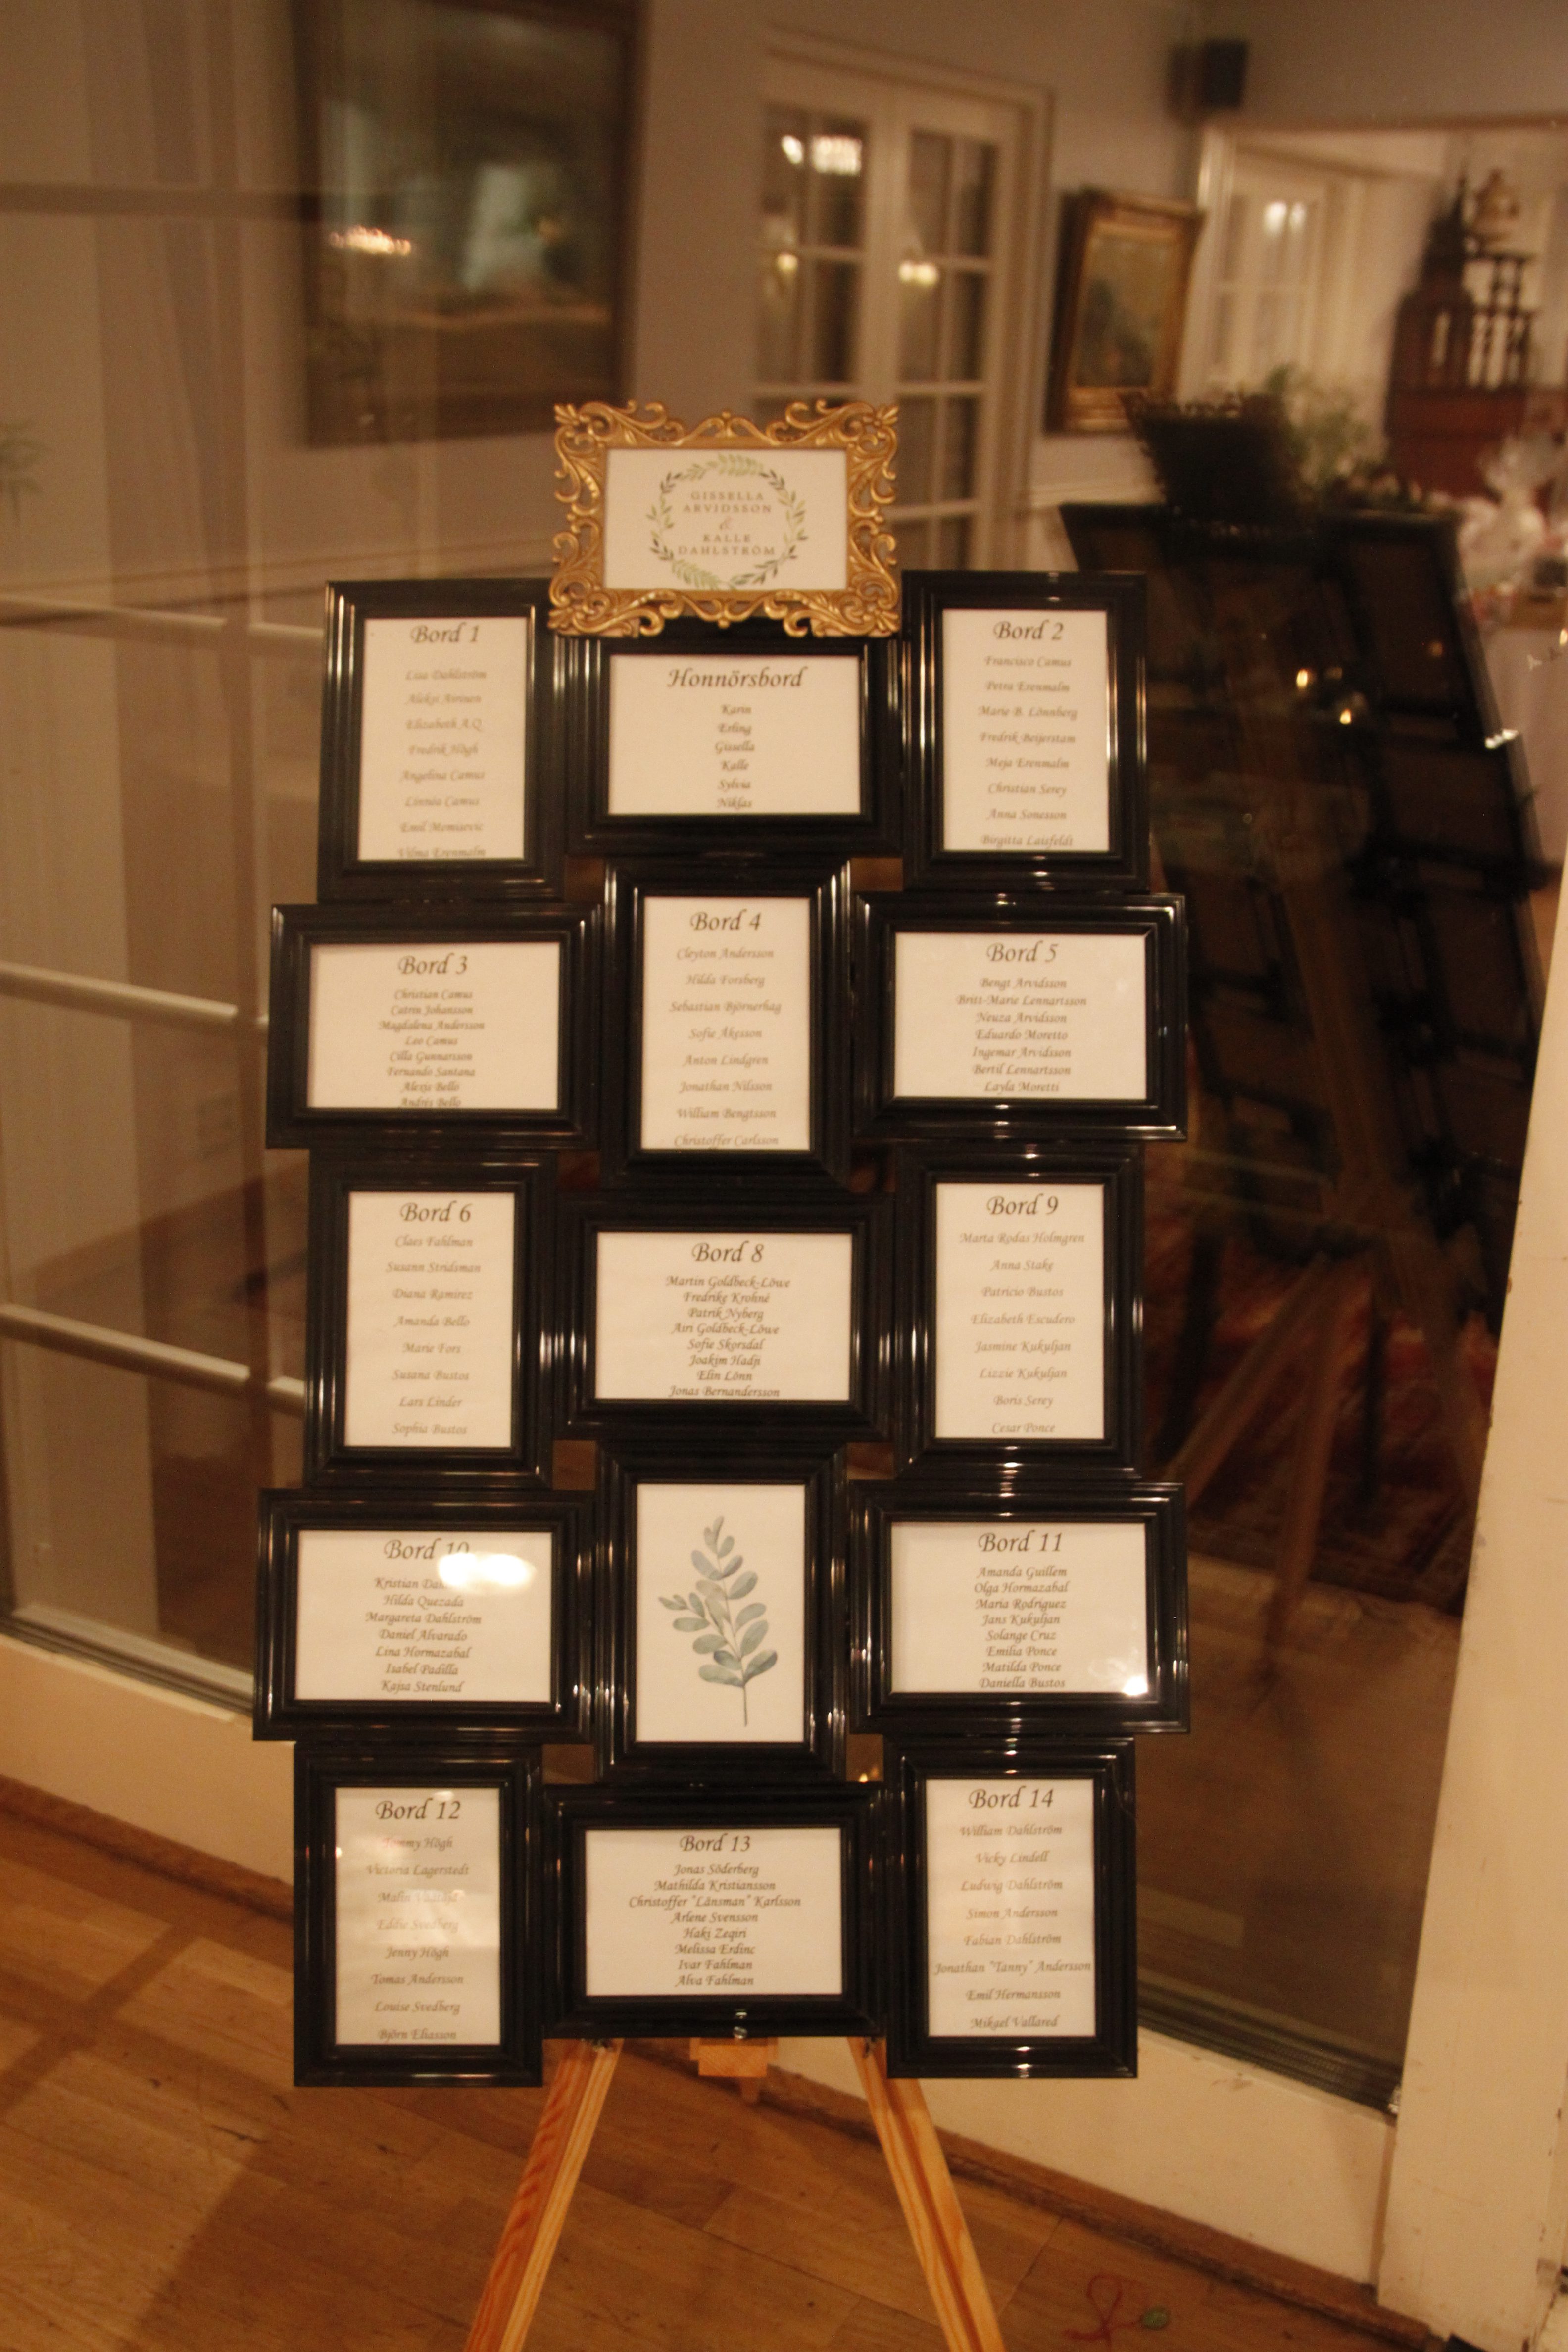 GISSELLA
ARVIDSSON
&
KALLE
DAHLSTRÖM
Bord 1
Lisa Dahlström
Aleksi
Elizabeth A.Q
Fredrik Högh
Angelina Camus
Linnéa Camus
Emil
Vilma Erenmalm
Honnörsbord
Karin
Erling
Gissella
Kalle
Sylvia
Niklas
Bord 2
Francisco Camus
Petra Erenmalm
Marie B. Lönnberg
Fredrik Beijerstam
Meja Erenmalm
Christian Serey
Anna Sonesson
Birgitta
Bord 3
Christian Camus
Catrin Johansson
Magdalena Andersson
Leo Camus
Cilla Gunnarsson
Fernando Santana
Alexis Bello
Andrés Bello
Bord 4
Cleyton Andersson
Hilda Forsberg
Sebastian Björnerhag
Sofie Åkesson
Anton Lindgren
Jonathan Nilsson
William Bengtsson
Christoffer Carlsson
Bord 5
Bengt Arvidsson
Britt-Marie Lennartsson
Neuza Arvidsson
Eduardo Moretto
Ingemar Arvidsson
Bertil Lennartsson
Layla Moretti
Bord 6
Claes Fahlman
Susann Stridsman
Diana Ramirez
Amanda Bello
Marie Fors
Susana Bustos
Lars Linder
Sophia Bustos
Bord 8
Martin Goldbeck-Löwe
Fredrike Krohné
Patrik Nyberg
Airi Goldbeck-Löwe
Sofie Skorsdal
Joakim Hadji
Elin Lönn
Jonas Bernandersson
Bord 9
Marta Rodas Holmgren
Anna Stake
Patricio Bustos
Elizabeth Escudero
Jasmine Kukuljan
Lizzie Kukuljan
Boris Serey
Cesar Ponce
Bord 10
Kristian
Hilda Quezada
Margareta Dahlström
Daniel Alvarado
Lina Hormazabal
Isabel Padilla
Kajsa Stenlund
Bord 11
Amanda Guillem
Olga Hormazabal
Maria Rodriguez
Jans Kukuljan
Solange Cruz
Emilia Ponce
Matilda Ponce
Daniella Bustos
Bord 12
Tommy Högh
Victoria Lagerstedt
Malin
Eddie Svedberg
Jenny Högh
Tomas Andersson
Louise Svedberg
Björn Eliasson
Bord 13
Jonas Söderberg
Mathilda Kristiansson
Christoffer "Länsman" Karlsson
Arlene Svensson
Haki Zeqiri
Melissa Erdinc
Ivar Fahlman
Alva Fahlman
Bord 14
William Dahlström
Vicky Lindell
Ludwig Dahlström
Simon Andersson
Fabian Dahlström
Jonathan "Tanny" Andersson
Emil Hermansson
Mikael Vallared